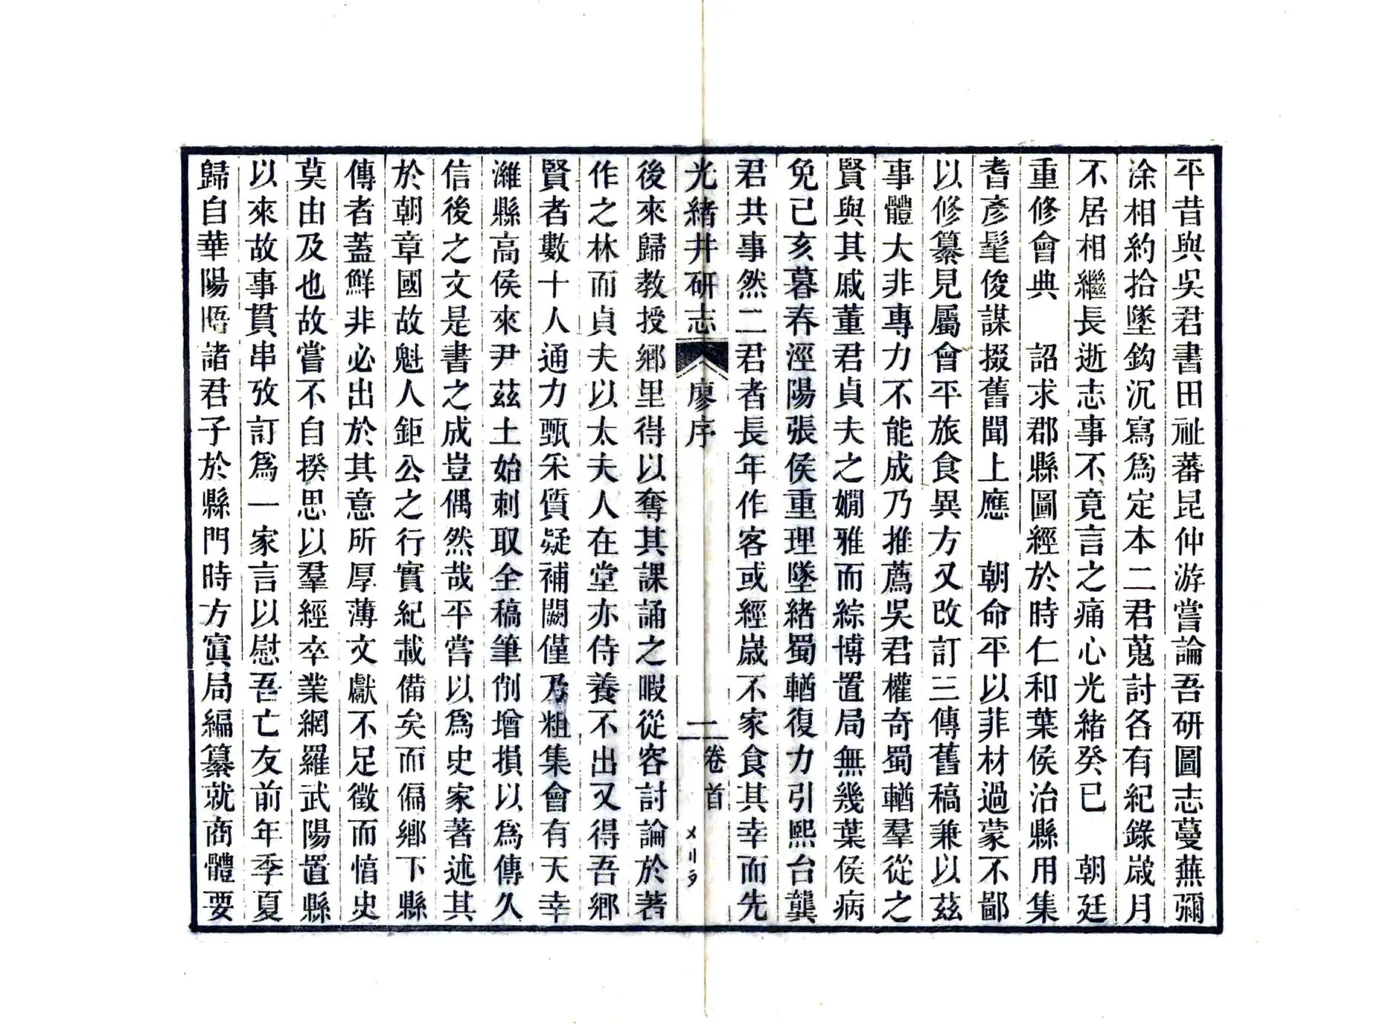 平昔與吳君書田祉蕃昆仲游嘗論吾研圖志蔓蕪彌
涂相約拾墜鈎沉寫爲定本二君蒐討各有紀錄歲月
不居相繼長逝志事不竟言之痛心光緒癸巳　朝廷
重修會典　詔求郡縣圖經於時仁和葉侯治縣用集
耆彥髦俊謀掇舊聞上應　朝命平以菲材過蒙不鄙
以修纂見屬會平旅食異方又改訂三傳舊稿兼以茲
事體大非專力不能成乃推薦吳君權奇蜀輶羣從之
賢與其戚董君貞夫之嫺雅而綜博置局無幾葉侯病
免己亥暮春涇陽張侯重理墜緒蜀輶復力引熙台龔
君共事然二君者長年作客或經歲不家食其幸而先
光緒井研志　廖序　二　卷首
後來歸教授鄉里得以奪其課誦之暇從容討論於著
作之林而貞夫以太夫人在堂亦侍養不出又得吾鄉
賢者數十人通力甄采質疑補闕僅乃粗集會有天幸
濰縣高侯來尹茲土始刺取全稿筆削增損以爲傳久
信後之文是書之成豈偶然哉平嘗以爲史家著述其
於朝章國故魁人鉅公之行實紀載備矣而偏鄉下縣
傳者蓋鮮非必出於其意所厚薄文獻不足徵而愼史
莫由及也故嘗不自揆思以羣經卒業網羅武陽置縣
以來故事貫串攷訂爲一家言以慰吾亡友前年季夏
歸自華陽晤諸君子於縣門時方寘局編纂就商體要